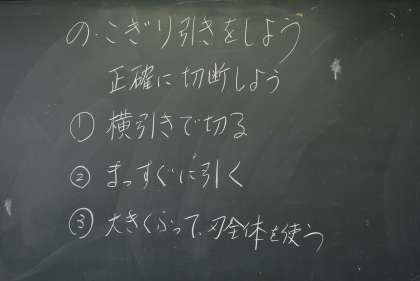 の・こぎり引きをしよう
正確に切断しよう
① 横引きで切る
② まっすぐに引く
③ 大きくふって、刃全体を使う